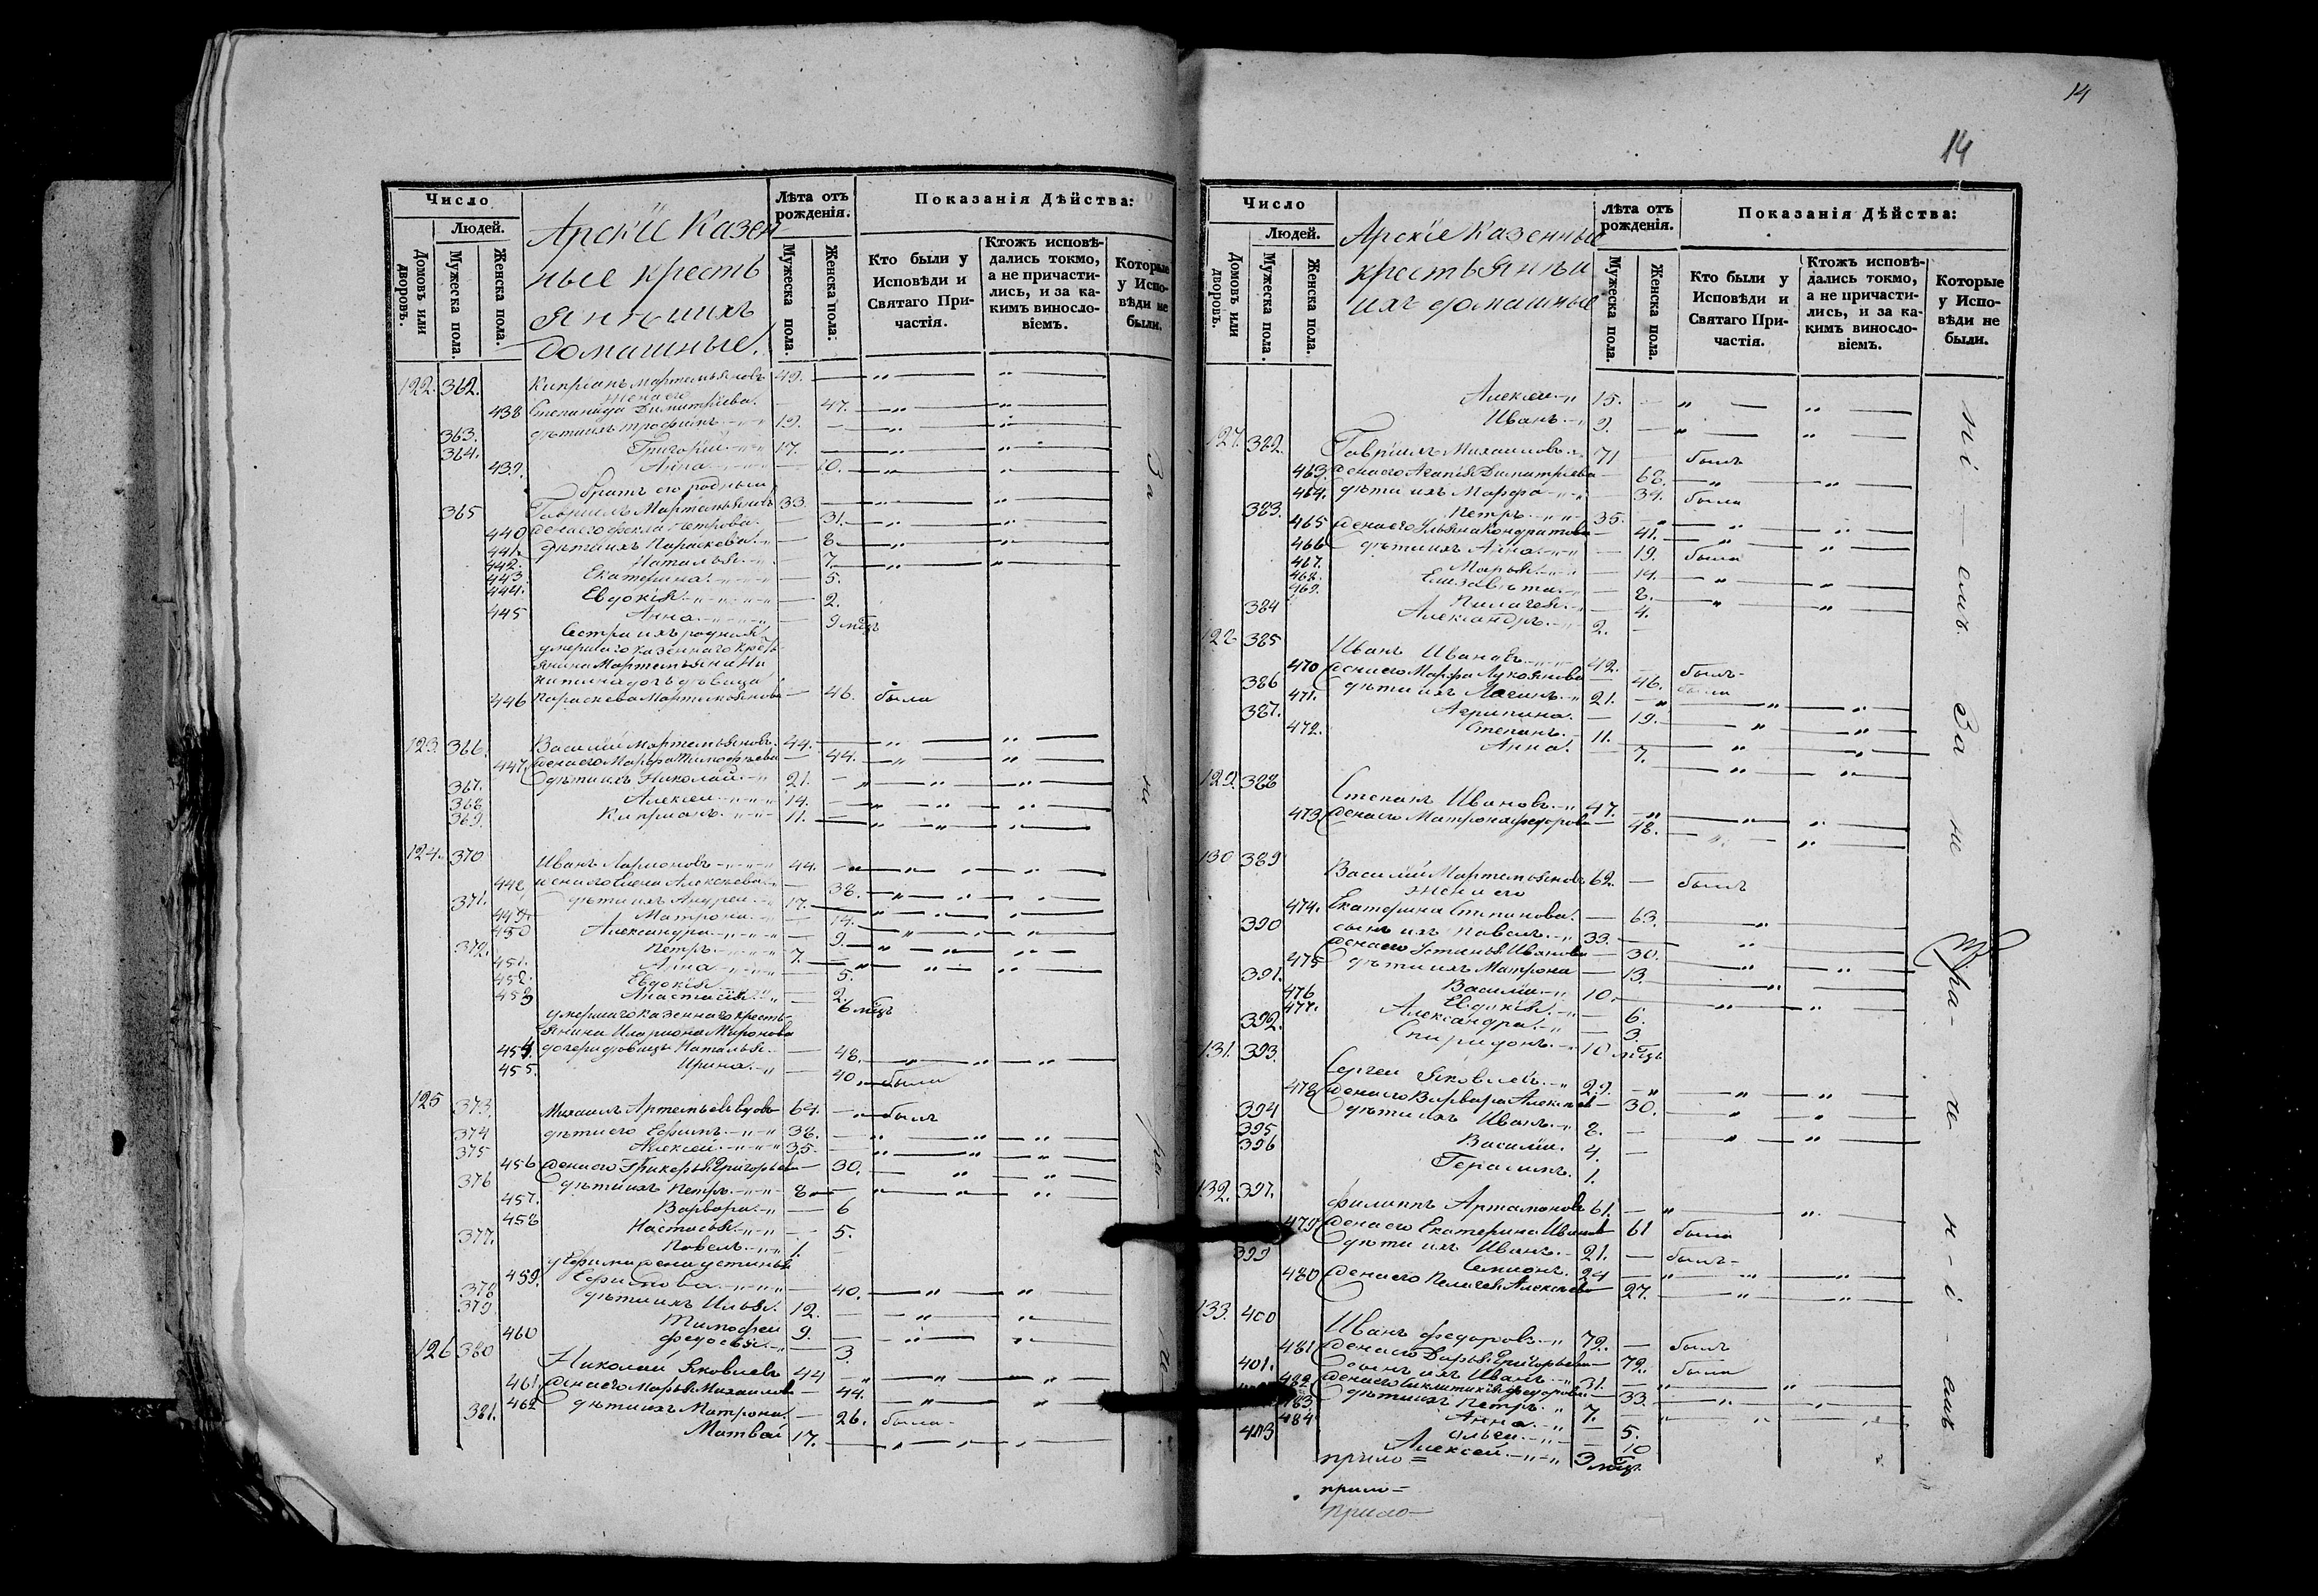 Число
Людей.
Домовъ или дворовъ.
Мужеска пола.
Женска пола.
Арскіе Казен
ные кресть
яне и ихъ
домашные.
Лѣта отъ рожденія.
Мужеска пола.
Женска пола.
Показанія Дѣйства:
Кто были у Исповѣди и Святаго Причастія.
Ктожъ исповѣдались токмо, а не причастились, и за какимъ винословіемъ.
Которые у Исповѣди не были.
122. 362. Кипріанъ Мартемьяновъ 49.
жена его
438 Степанида Димитріева. 47.
363. дѣти ихъ Трофимъ 19.
364. Григорій 17.
439. Анна 10.
братъ его родный
365 Гавріилъ Мартемьяновъ 33.
440 жена его Фекла Петрова. 31.
441. дѣти ихъ Параскева 8.
442. Наталья 7.
443. Екатерина 5.
444. Евдокія 2.
445 Анна 9 мѣц
Сестра ихъ родная
умершаго казеннаго кресть
янина Мартемьяна
дочь дѣвица
446 Параскева Мартемьянова 46. была
123. 366. Василій Мартемьяновъ. 44.
447. жена его Марфа Тимофѣева 44.
367. дѣти ихъ Николай 21.
368. Алексей 14.
369. Кипріанъ 11.
124. 370 Иванъ Ларионовъ 44.
448 жена его Елена Алексѣева 38.
371. дѣти ихъ Андрей 17.
449. Матрона 14.
450 Александра 9.
372. Петръ 7.
451. Анна 5.
452. Евдокія 2.
453 Анастасія 6 мѣц
умершаго казеннаго кресть
янина Илариона Миронова
454. дочери дѣвицы Наталья 48.
455. Ирина 40. были
125 373. Михаилъ Артемьевъ вдовъ 64. былъ
374 дѣти его Ефимъ 38.
375 Алексей 35.
456 жена его Гликерья Григорьева 30.
376 дѣти ихъ Петръ 8
457. Варвара 6
458 Настасья 5.
377. Павелъ 1.
у Ефима жена Устинья
459. Ефимова 40.
378 дѣти ихъ Илья 12.
379 Тимофей 9.
460 Федосья 3.
126 380 Николай Яковлевъ 44
461 жена его Марья Михаилова 44.
462 дѣти ихъ Матрона 26. была
381. Матвѣй 17.
За не
14
14
Число
Людей.
Домовъ или дворовъ.
Мужеска пола.
Женска пола.
Арскіе Казенные
крестьяне и
ихъ домашные
Лѣта отъ рожденія.
Мужеска пола.
Женска пола.
Показанія Дѣйства:
Кто были у Исповѣди и Святаго Причастія.
Ктожъ исповѣдались токмо, а не причастились, и за какимъ винословіемъ.
Которые у Исповѣди не были.
Алексей 15.
Иванъ 9.
127. 382. Гавріилъ Михаиловъ 71 былъ
463. жена его Агапія Димитріева 68.
464. дѣти ихъ Марфа 39. была
383. Петръ 35.
465 жена его Ульяна Кондратова 41.
466 дѣти ихъ Анна 19. была
467. Марья 14.
468. Елизавета 8.
469. Пелагея 4.
384 Александръ 2.
128 385 Иванъ Ивановъ 42. былъ
470 жена его Марфа Лукоянова 46. была
386 дѣти ихъ Логинъ 21.
471. Агрипина 19.
387. Степанъ 11.
472. Анна 7.
129. 388 Степанъ Ивановъ 47.
473 жена его Матрона Федорова 48.
130 389 Василій Мартемьяновъ 62. былъ
жена его
474. Екатерина Степанова. 63.
390 сынъ ихъ Павелъ 33.
475 жена его Устинья Иванова 30.
дѣти ихъ Матрона 13.
391. Василій 10.
476 Евдокія 6.
477. Александра 3.
392. Спиридонъ 10 мѣц
131. 393. Сергей Яковлевъ 29.
478 жена его Варвара Алексѣева 30.
394 дѣти ихъ Иванъ 8.
395 Василій 4.
396 Герасимъ 1.
132. 397. Филиппъ Артамоновъ 61.
479 жена его Екатерина Иванова 61 была
дѣти ихъ Иванъ 21. былъ
399 Семионъ 24
480 жена его Пелагея Алексѣева 27.
133. 400 Иванъ Федоровъ 72. былъ
481 жена его Дарья Григорьева 72. была
401. сынъ ихъ Иванъ 31.
482 жена его Федорова 33.
дѣти ихъ Петръ 7.
483. Анна 5.
484 10
403 Алексей 3 мѣц
ніемъ. За не